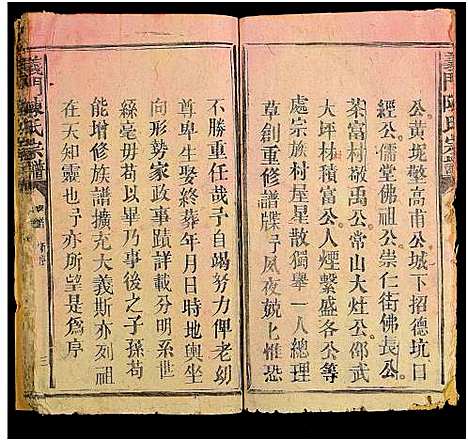 義門陳氏宗譜
公黃坭擎高甫公城下招德坑口
經公儒堂佛祖公崇仁街佛長公
茶富村敬禹公常山大灶公邵武
大坪村積富公人煙繁盛各公等
處宗族村屋星散獨舉一人總理
草創重修譜牒予夙夜兢兢惟恐
不勝重任哉予自竭努力俾老幼
尊卑生娶終葬年月日時地輿坐
向形勢家政事蹟詳載分明系世
綠毫毋苟以畢乃事後之子孫苟
能增修族譜擴充大義斯亦列祖
在天知靈也予亦所望是爲序
義門陳氏宗譜
三